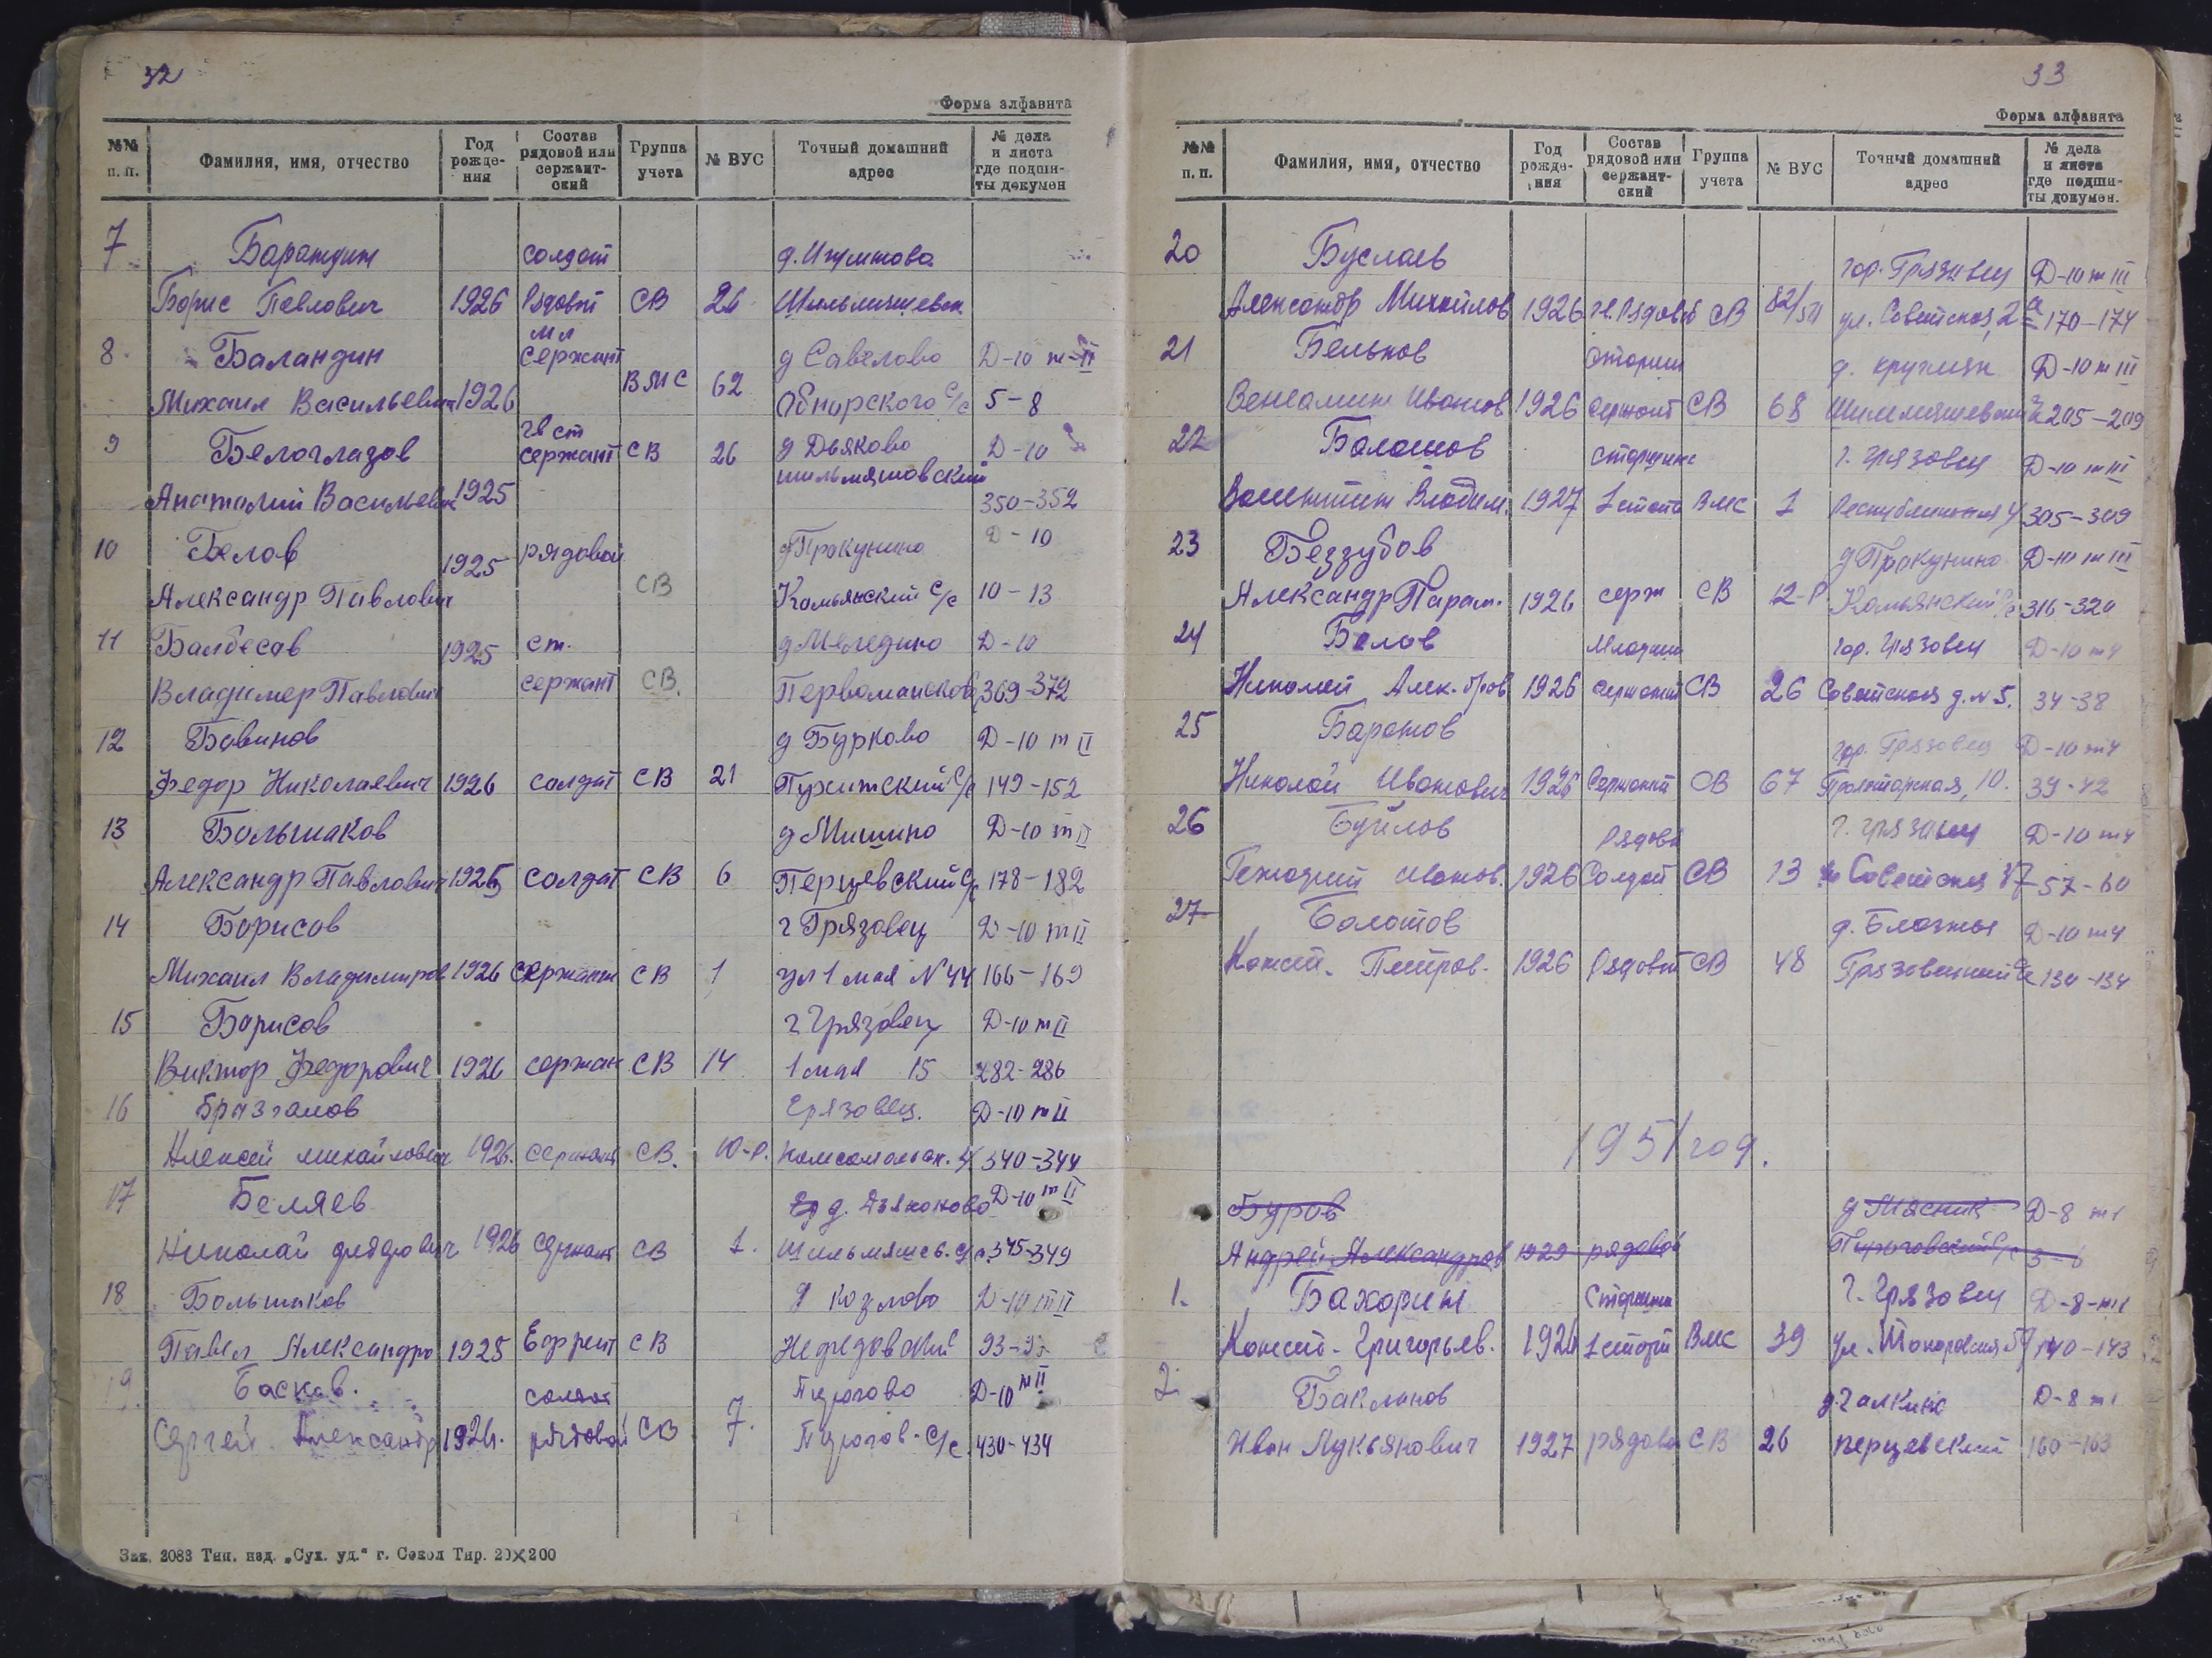 32
Форма алфавита
№№ п. п. Фамилия, имя, отчество Год рожде- ния Состав рядовой или сержант- ский Группа учета № ВУС Точный домашний адрес № дела и листа где подши- ты докумен
7 солдат
Борис Павлович 1926 Рядовой СВ 26
8 Баландин мл сержант д Савелово Д-10 т-II
Михаил Васильевич 1926 ВМС 62 Обнорского с/с 5-8
9 Белоглазов гв ст сержант СВ 26 д Дьяково Д-10
Анатолий Васильевич 1925 шильмяшовский 350-352
10 Белов 1925 рядовой д Прокунино Д-10
Александр Павлович СВ Комьянский с/с 10-13
11 Балбесов 1925 ст. д Меледино Д-10
Владимер Павлович сержант СВ. 369-372
12 Бовинов д Бурково Д-10 т II
Федор Николаевич 1926 солдат СВ 21 149-152
13 Большаков д Мишино Д-10 т II
Александр Павлович солдат СВ 6 Перцевский с/с 178-182
14 Борисов г Грязовец Д-10 т II
Михаил Владимиров 1926 сержант СВ 1 ул 1 мая N 44 166-169
15 Борисов г Грязовец Д-10 т II
Виктор Федорович 1926 сержан СВ 14 1 мая 15 282-286
16 Бразгалов Грязовец. Д-10 т II
Алексей михайлович 1926. сержант СВ. 10-р. 340-344
17 Беляев д. Дьяконово Д-10 т II
Николай 1926 сержант СВ 1. Шильмяшев. с/с. 345-349
18 Большаков д козлово Д-10 т II
Павел Александро 1925 Ефрейт СВ Нефедовский
19. Басков. солдат Пирогово Д-10 т II
Сергей Александр 1926. рядовой СВ 7. Пирогов. с/с. 430-434
Зак. 2083 Тип. изд. „Сух. уд." г. Сокол Тир. 20×200
33
Форма алфавита
№№ п. п. Фамилия, имя, отчество Год рожде- ния Состав рядовой или сержант- ский Группа учета № ВУС Точный домашний адрес № дела и листа где подши- ты докумен.
20 Буслаев гор. Грязовец Д-10 т III
Александр Михайлов 1926 СВ ул. Советская, 170-174
21 Бельков Старший Д-10 т III
Вениамин Иванов 1926 сержант СВ 68 205-209
22 Балашов старшина г. Грязовец Д-10 т III
Валентин Владим. 1927 1 стат ВМС 1 305-309
23 Беззубов д Прокунино Д-10 т III
Александр Парам. 1926 серж СВ 12-Р Комьянский с/с 316-320
24 Белов Младший гор. Грязовец Д-10 т 4
Николай Алек-дров 1926 сержант СВ 26 Советская д. N 5. 34-38
25 Баранов гор. Грязовец Д-10 т 4
Николай Иванович 1926 Сержант СВ 67 Пролетарская, 10. 39-42
26 Буйлов Рядовой г. Грязовец Д-10 т 4
Генадий Иванов. 1926 Солдат СВ 13 Советская 57-60
27 Болотов Д-10 т 4
Конст. Петров. 1926 Рядовой СВ 48 Грязовецкий с/с 130-134
1951 год.
Буров д Мясник Д-8 т 1
Андрей Александров 1929 рядовой Пироговский с/с 3-6
1. Бахорин Старшина г. Грязовец Д-8-т 1
Конст. Григорьев. 1926 1 стат ВМС 39 140-143
2. Бакланов д. Галкино Д-8 т 1
Иван Лукьянович 1927 рядовой СВ 26 перцевский 160-163